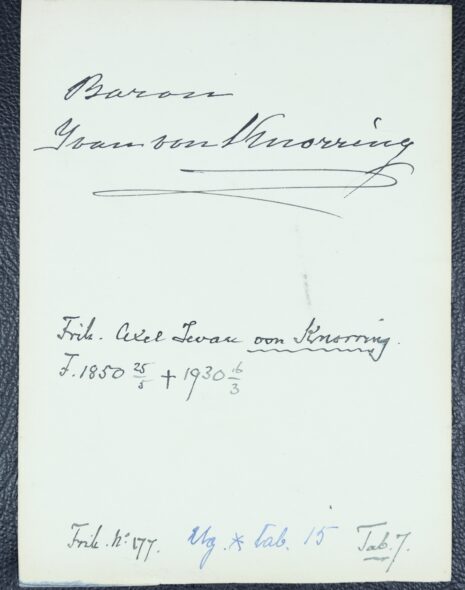 Baron
Yvan von Knorring
Frih. Axel Iwan von Knorring.
F. 1850 25/5 + 1930 16/3
Frih. No 177. Utg. * tab. 15 Tab. 7.